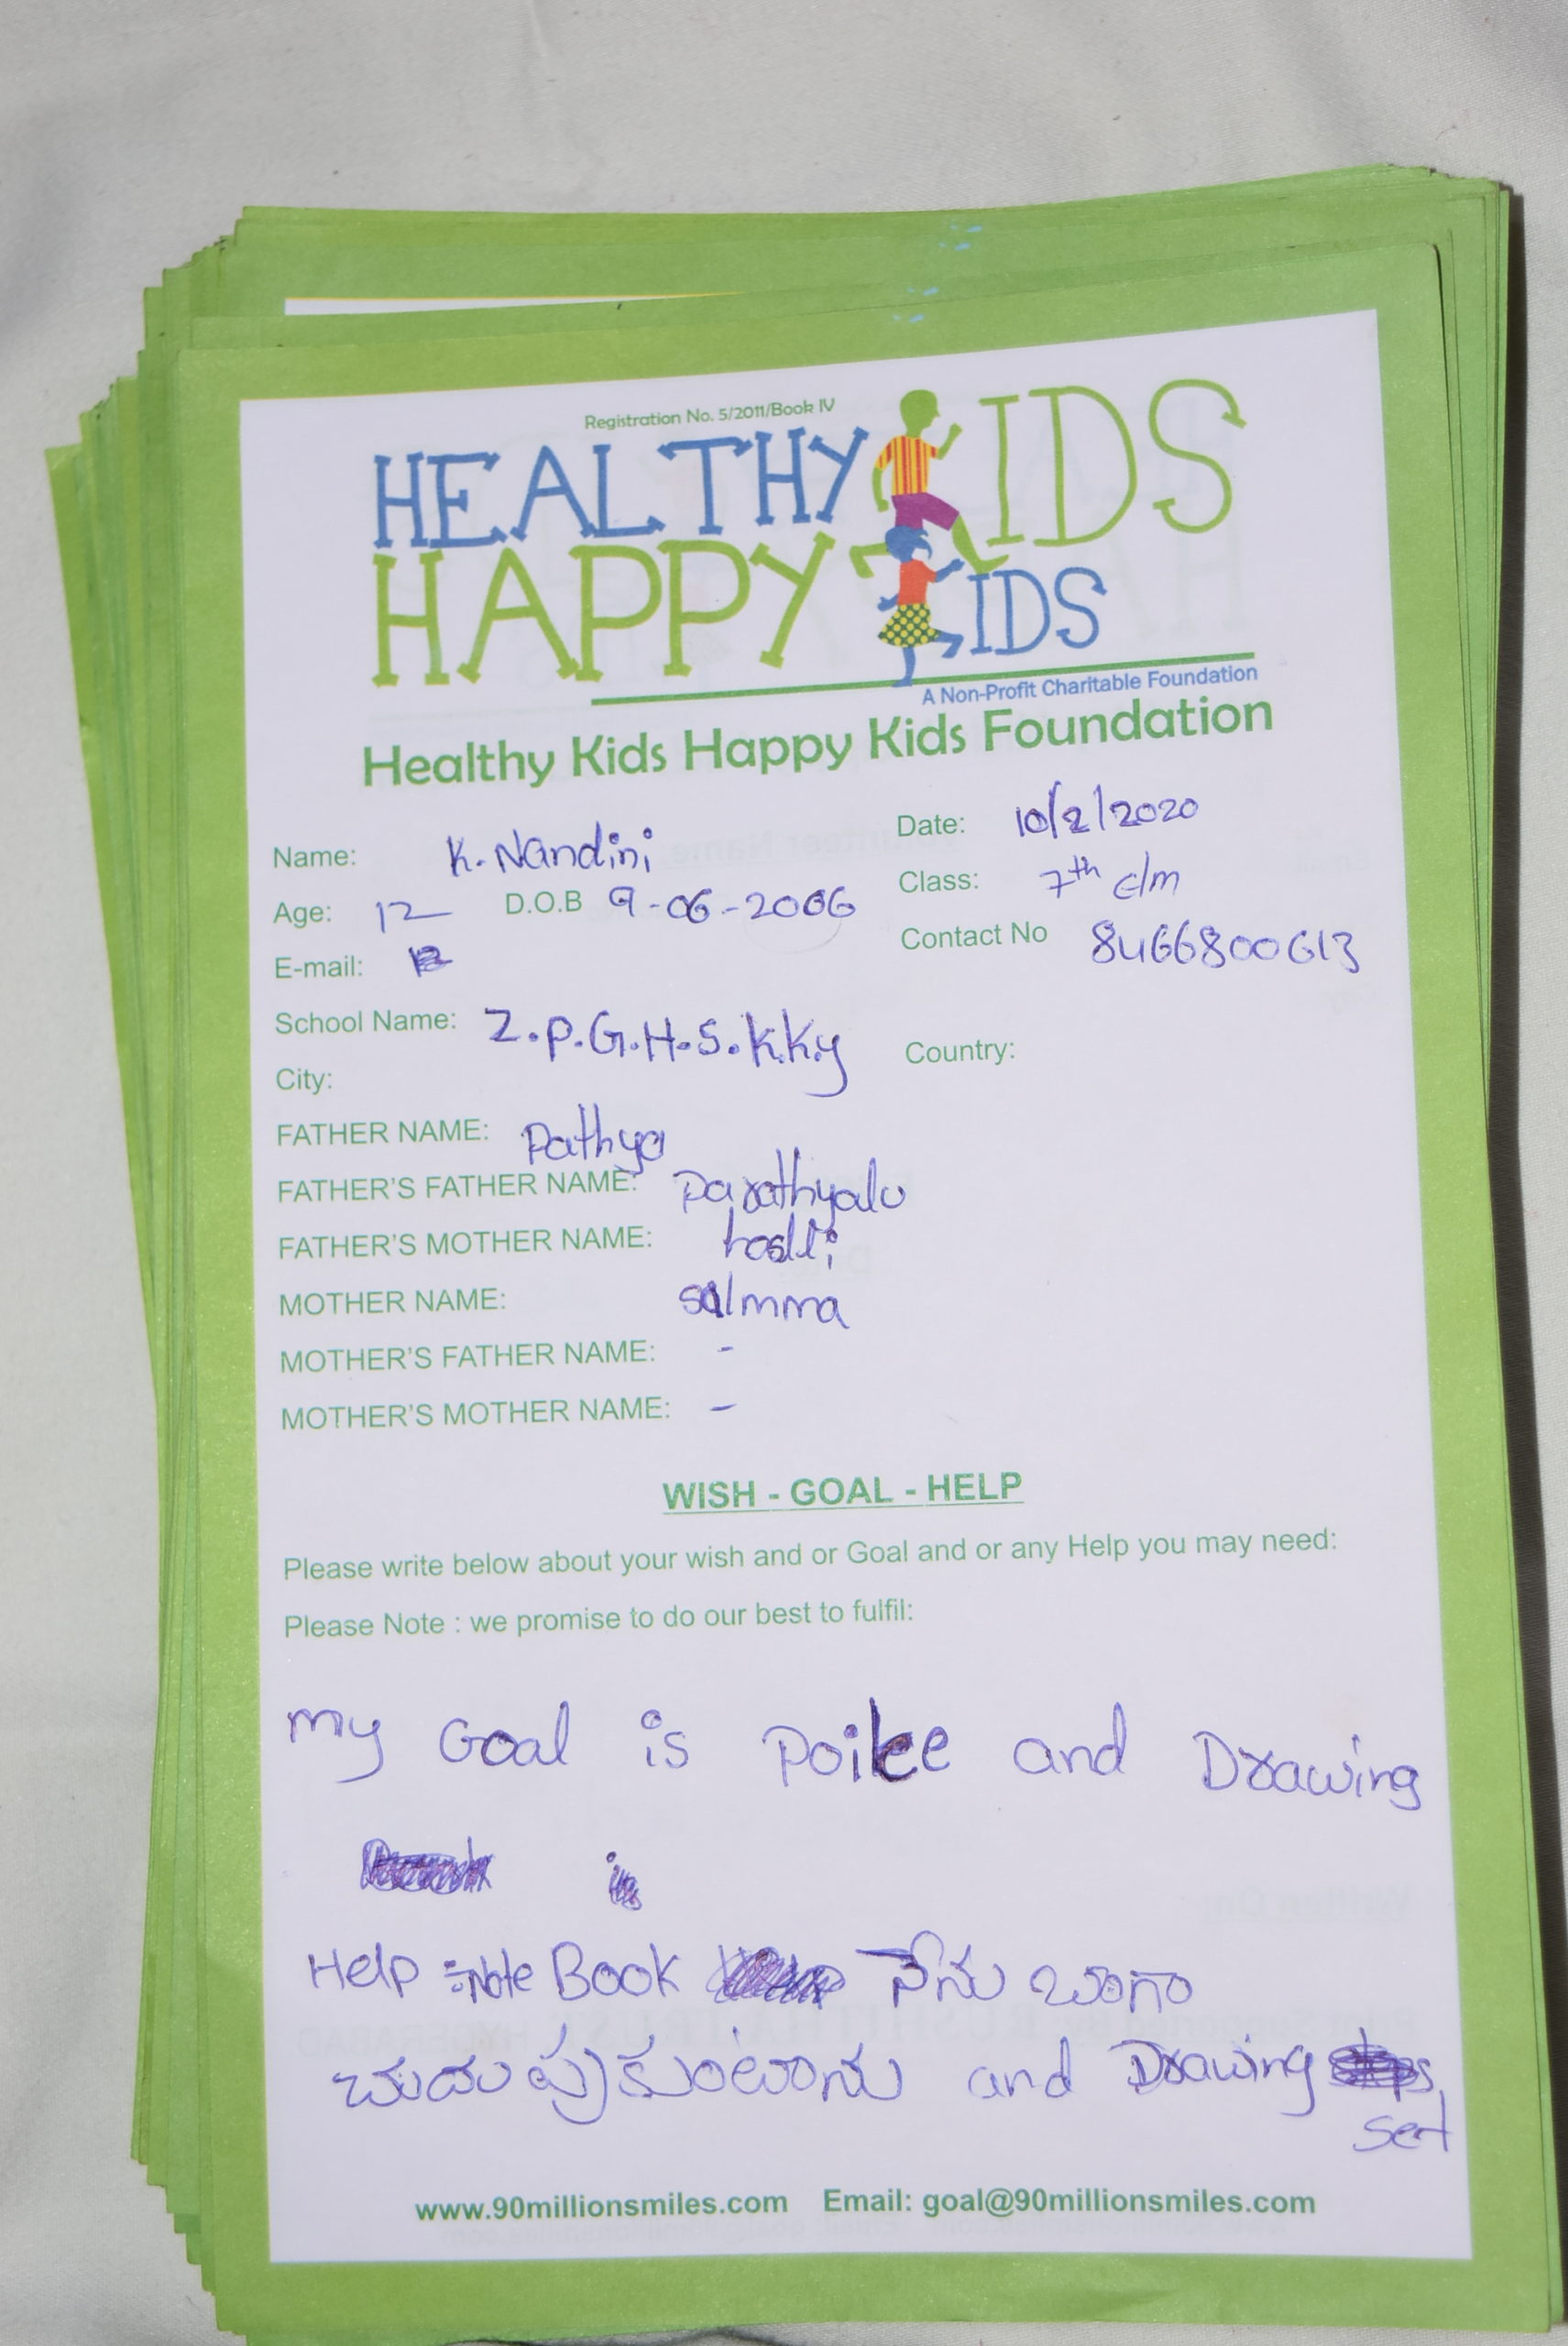 Registration No. 5/2011/Book IV
HEALTHY KIDS
HAPPY KIDS
A Non-Profit Charitable Foundation
Healthy Kids Happy Kids Foundation
Name: K. Nandini Date: 10/2/2020
Age: 12 D.O.B 9-06-2006 Class: 7th E/m
E-mail: Contact No 8466800613
School Name: Z.P.G.H.S.K.K.y
City: Country:
FATHER NAME: Pathya
FATHER'S FATHER NAME: Parathyalu
FATHER'S MOTHER NAME:
MOTHER NAME: salmma
MOTHER'S FATHER NAME: -
MOTHER'S MOTHER NAME: -
WISH - GOAL - HELP
Please write below about your wish and or Goal and or any Help you may need:
Please Note : we promise to do our best to fulfil:
my Goal is and Drawing
Help Note Book నేను బాగా
చుదువుకుంటాను and Drawing
set
www.90millionsmiles.com Email: goal@90millionsmiles.com